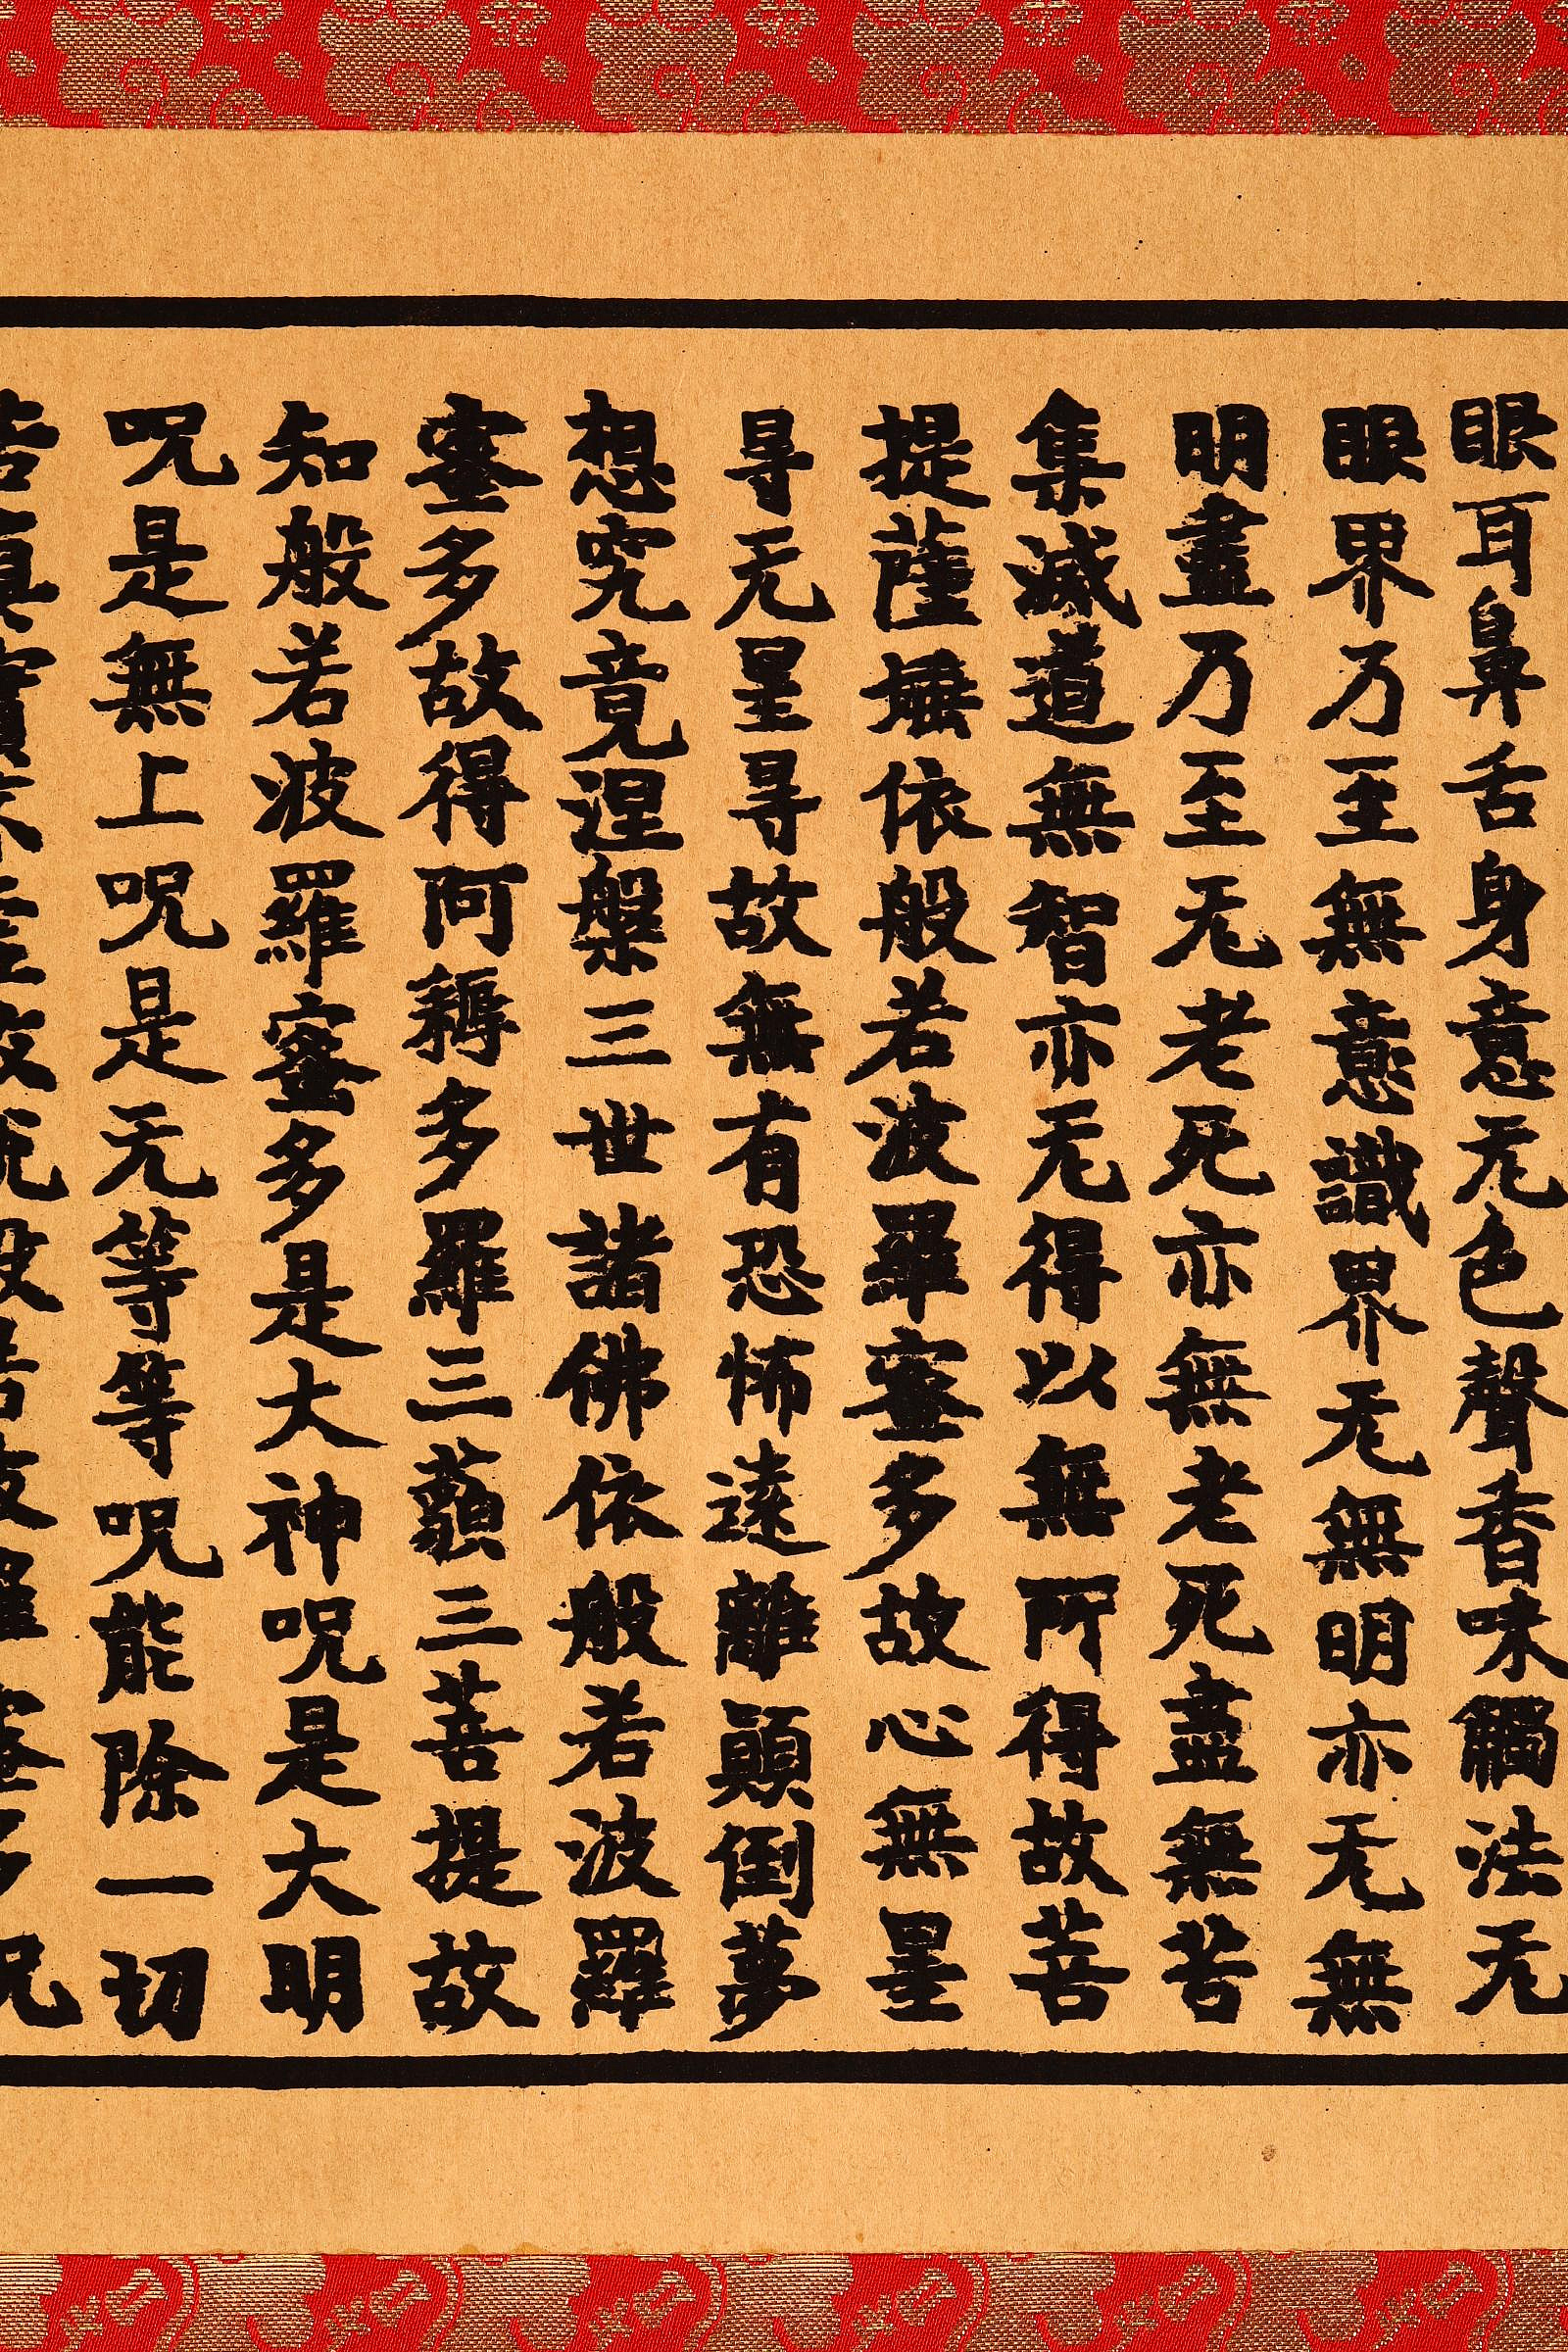 眼耳鼻舌身意无色聲香味觸法无
眼界乃至無意識界无無明亦无無
明盡乃至无老死亦無老死盡無苦
集滅道無智亦无得以無所得故菩
提薩埵依般若波羅蜜多故心無罣
㝵无罣㝵故無有恐怖遠離顛倒夢
想究竟涅槃三世諸佛依般若波羅
蜜多故得阿耨多羅三藐三菩提故
知般若波羅蜜多是大神呪是大明
呪是無上呪是无等等呪能除一切